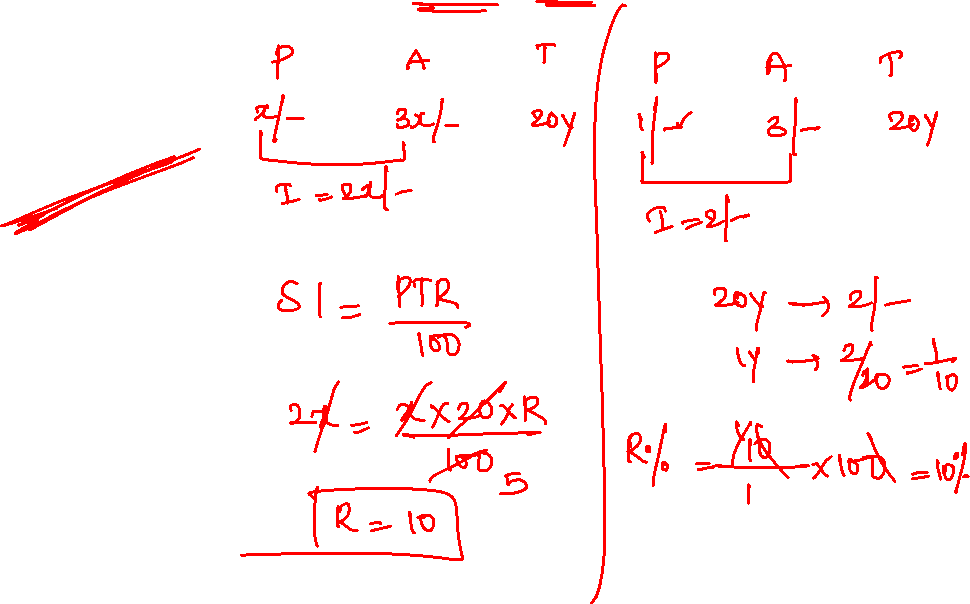 P A T
x/- 3x/- 20y
I = 2x/-
SI = PTR/100
2x = x × 20 × R/100
5
R = 10
P A T
1/- 3/- 20y
I = 2/-
20y → 2/-
1y → 2/20 = 1/10
R% = 1/10/1 × 100 = 10%